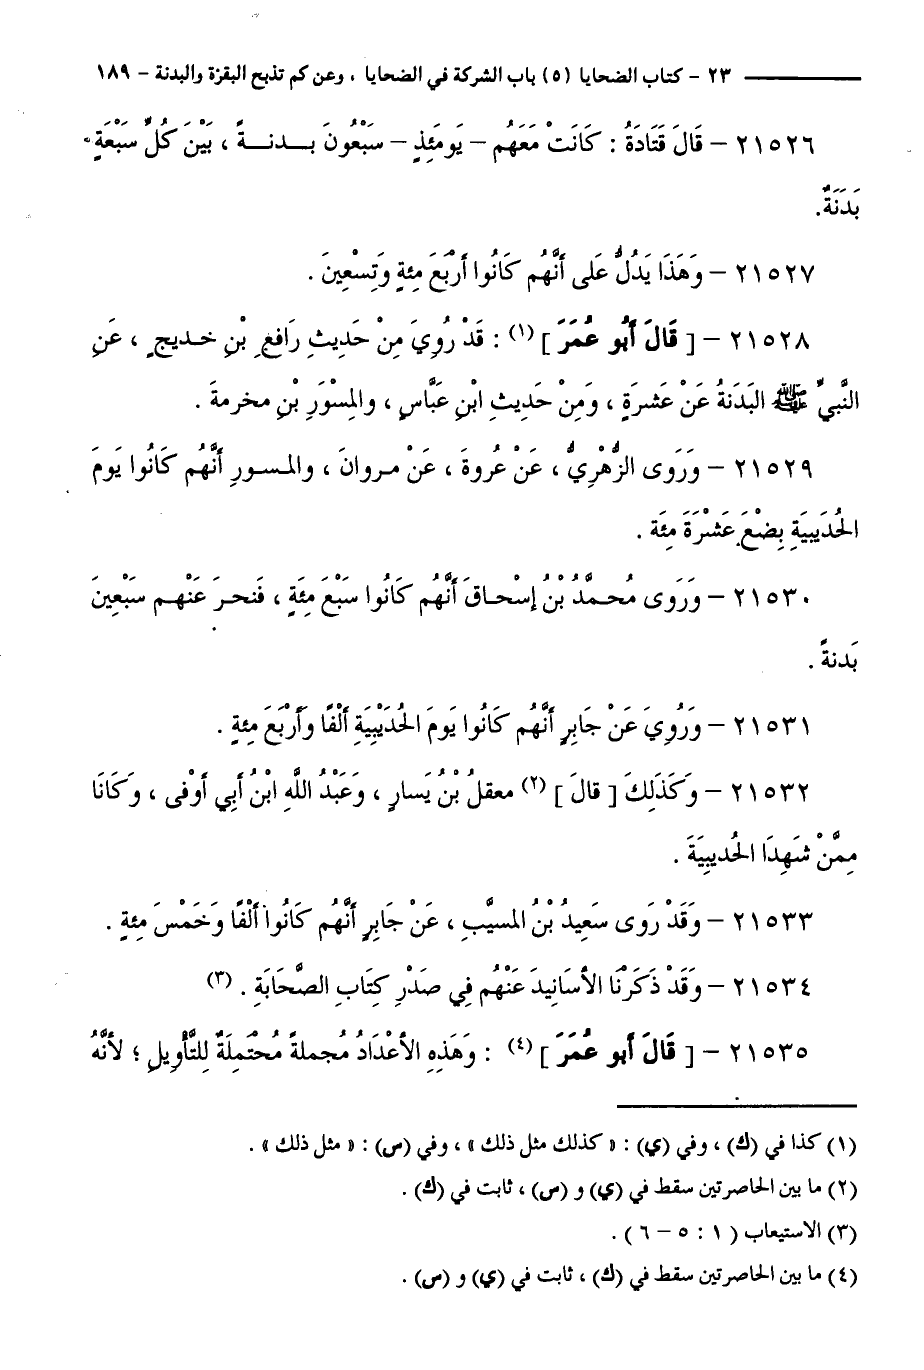 ٢٣ - كتاب الضحايا (٥) باب الشركة في الضحايا ، وعن كم تذبح البقرة والبدنة - ١٨٩
٢١٥٢٦ - قَالَ قَتَادَةُ : كَانَتْ مَعَهُم - يَومَئِذٍ - سَبْعُونَ بَــدنــةً ، بَيْنَ كُلِّ سَبْعَةٍ
بَدَنَةٌ.
٢١٥٢٧ - وَهَذَا يَدُلُّ عَلى أَنَّهُم كَانُوا أَرْبَعَ مِئةٍ وَتِسْعِينَ .
٢١٥٢٨ - [ قَالَ أَبُو عُمَرَ ] (١) : قَدْ رُوِيَ مِنْ حَدِيثِ رَافعِ بْنِ خـديجٍ ، عَنِ
النَّبِيِّ ﷺ البَدَنَةُ عَنْ عَشرَةٍ ، وَمِنْ حَدِيثِ ابْنِ عَبَّاسٍ ، والمِسْوَرِ بْنِ مخرمةَ .
٢١٥٢٩ - وَرَوَى الزُّهْرِيُّ ، عَنْ عُروةَ ، عَنْ مـروانَ ، والمـسـورِ أَنَّهُم كَانُوا يَومَ
الحُدَيبِيَةِ بِضْعَ عَشْرَةَ مِئَة .
٢١٥٣٠ - وَرَوَى مُحـمَّدُ بْنُ إِسْحـاقَ أَنَّهُم كَانُوا سَبْعَ مِئَةٍ ، فَنحـرَ عَنْهُـم سَبْعِينَ
بَدنةً .
٢١٥٣١ - وَرُوِيَ عَنْ جَابِرٍ أَنَّهُم كَانُوا يَومَ الحُدَيْبِيَةِ أَلْفًا وَأَرْبَعَ مِئةٍ .
٢١٥٣٢ - وَكَذَلِكَ [ قالَ ] (٢) معقلُ بْنُ يَسارٍ ، وَعَبْدُ اللَّهِ ابْنُ أَبِي أَوْفى ، وَكَانَا
مِمَّنْ شَهِدَا الحُديبِيَةَ .
٢١٥٣٣ - وَقَدْ رَوى سَعِيدُ بْنُ المسيَّبِ ، عَنْ جَابِرٍ أَنَّهُم كَانُوا أَلْفًا وَخَمْسَ مِئةٍ .
٢١٥٣٤ - وَقَدْ ذَكَرْنَا الأَسَانِيدَ عَنْهُم فِي صَدْرِ كِتَابِ الصَّحَابَةِ . (٣)
٢١٥٣٥ - [ قَالَ أَبو عُمَرَ ] (٤) : وَهَذِهِ الأَعْدَادُ مُجملةً مُحْتَمِلَةٌ لِلتَّأْوِيلِ ؛ لأَنَّهُ
(١) كذا في (ك) ، وفي (ي) : « كذلك مثل ذلك » ، وفي (س) : « مثل ذلك » .
(٢) ما بين الحاصرتين سقط في (ي) و (س) ، ثابت في (ك) .
(٣) الاستيعاب ( ١ : ٥ - ٦ ) .
(٤) ما بين الحاصرتين سقط في (ك) ، ثابت في (ي) و (س) .